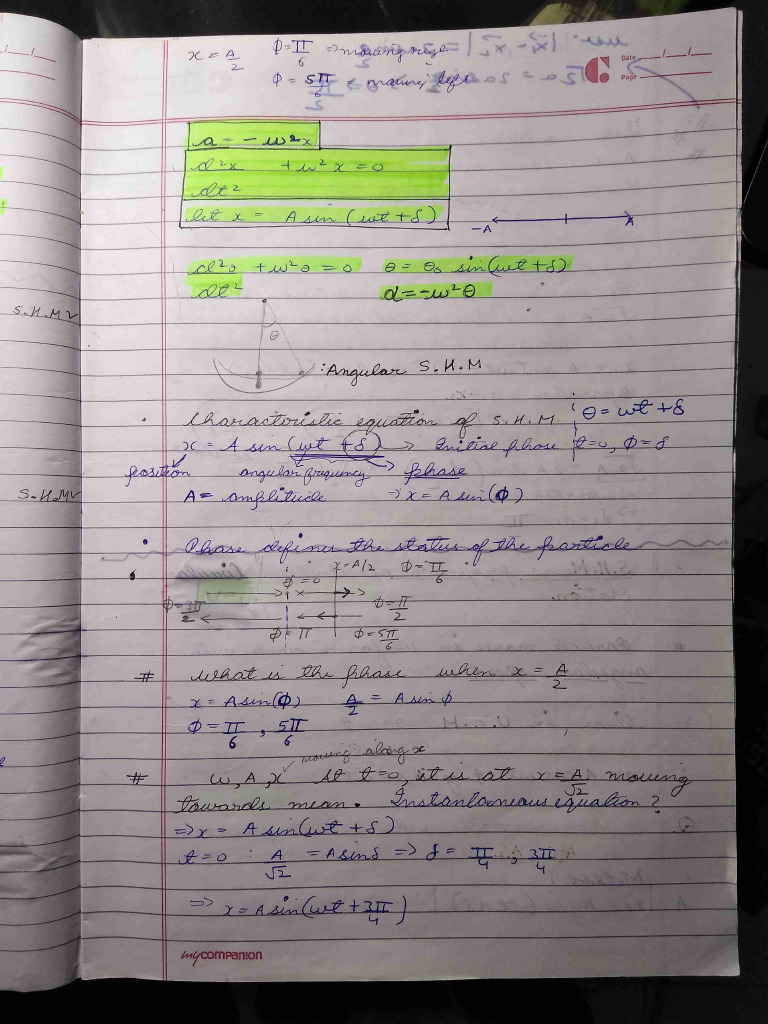 x = A/2 ϕ = π/6 ⇒ moving right
ϕ = 5π/6 ⇒ moving left
Date
Page
a = -w²x
d²x/dt² + w²x = 0
let x = A sin (wt + δ)
-A A
d²θ/dt² + w²θ = 0 θ = θ₀ sin(wt + δ)
α = -w²θ
S.H.M
θ
: Angular S.H.M
. Characteristic equation of S.H.M θ = wt + δ
x = A sin (wt + δ) → Initial phase t=0, ϕ = δ
position angular frequency → phase
A = amplitude ⇒ x = A sin(ϕ)
S.H.M
• Phase defines the status of the particle
x = A/2 ϕ = π/6
ϕ = 0
ϕ = 3π/2 ϕ = π/2
ϕ = π ϕ = 5π/6
# What is the phase when x = A/2
x = A sin(ϕ) A/2 = A sin ϕ
ϕ = π/6 , 5π/6
moving along x
# w, A, x At t=0, it is at x = A/√2 moving
towards mean. Instantaneous equation?
⇒ x = A sin(wt + δ)
t = 0 : A/√2 = A sin δ ⇒ δ = π/4 , 3π/4
⇒ x = A sin(wt + 3π/4)
mycompanion